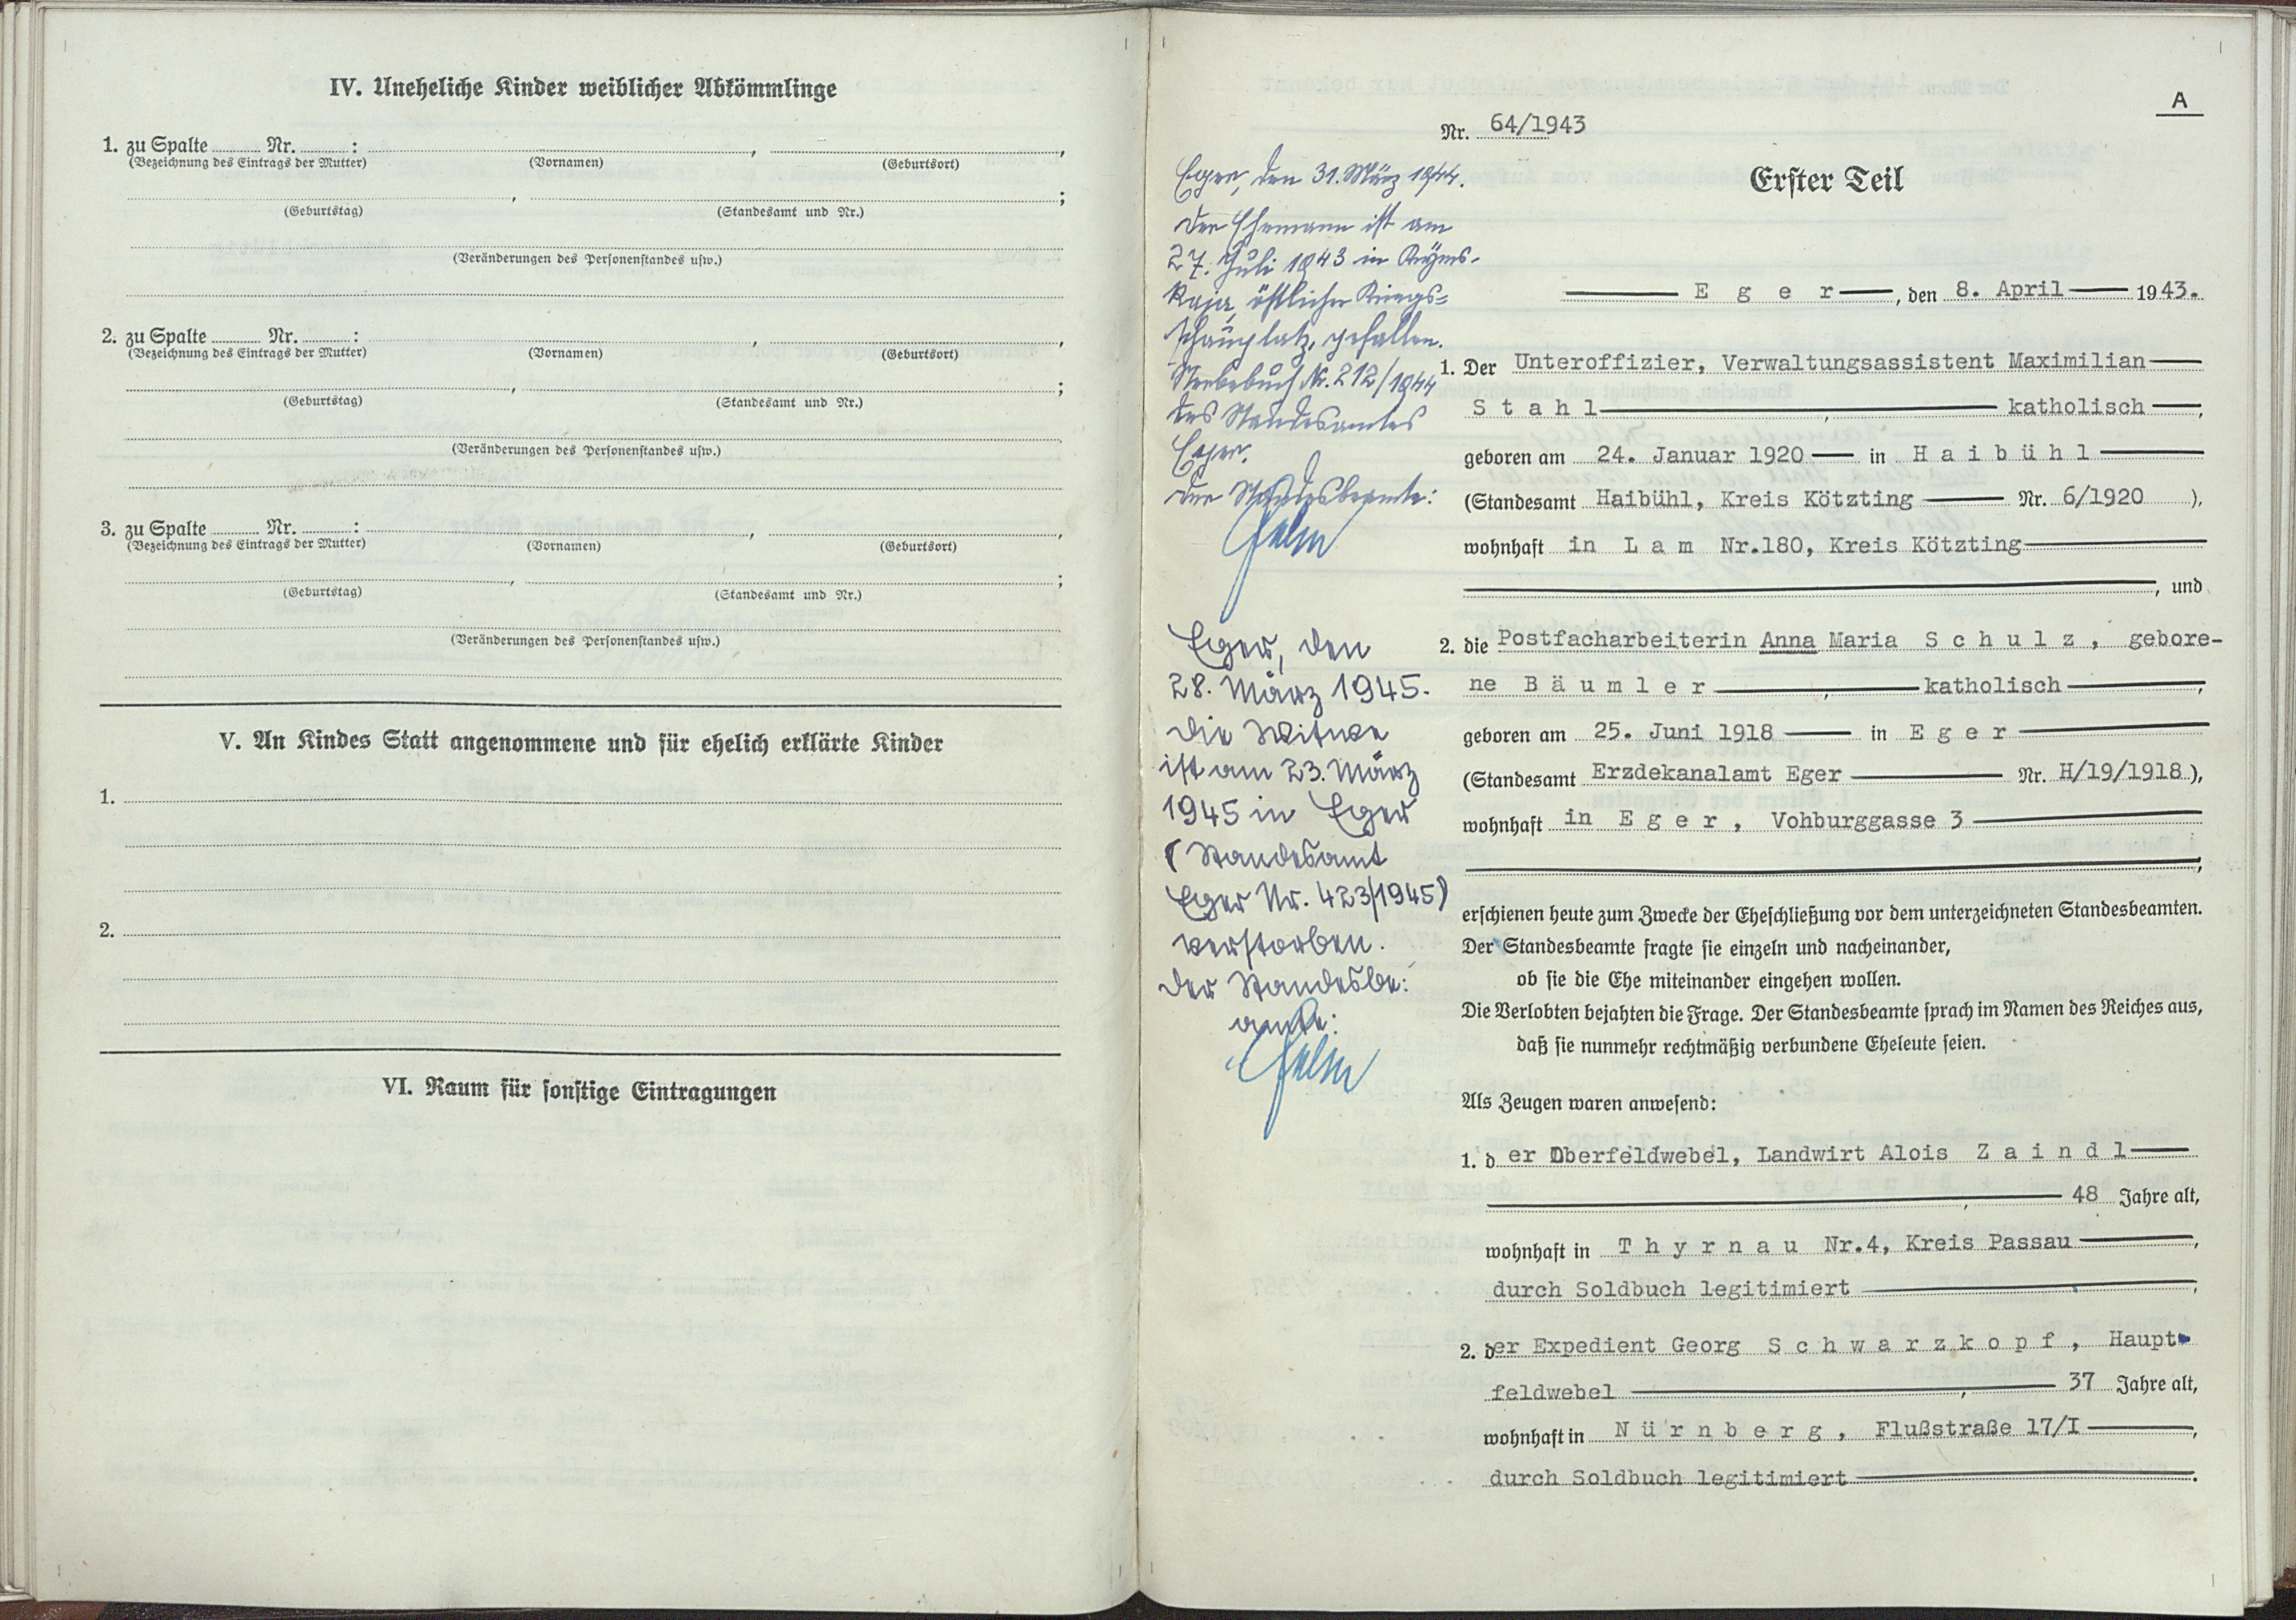 IV. Uneheliche Kinder weiblicher Abkömmlinge
1. zu Spalte ........ Nr. ........ : , ,
(Bezeichnung des Eintrags der Mutter) (Vornamen) (Geburtsort)
, ;
(Geburtstag) (Standesamt und Nr.)
(Veränderungen des Personenstandes usw.)
2. zu Spalte ........ Nr. ........ : , ,
(Bezeichnung des Eintrags der Mutter) (Vornamen) (Geburtsort)
, ;
(Geburtstag) (Standesamt und Nr.)
(Veränderungen des Personenstandes usw.)
3. zu Spalte ........ Nr. ........ : , ,
(Bezeichnung des Eintrags der Mutter) (Vornamen) (Geburtsort)
, ;
(Geburtstag) (Standesamt und Nr.)
(Veränderungen des Personenstandes usw.)
V. An Kindes Statt angenommene und für ehelich erklärte Kinder
1.
2.
VI. Raum für sonstige Eintragungen
A
Nr. 64/1943
Erster Teil
Eger, den 31. März 1944.
Der Ehemann ist am
27. Juli 1943 in Kryms-
kaja, östlicher Kriegs=
schauplatz, gefallen.
Sterbebuch Nr. 212/1944
des Standesamtes
Eger.
Der Standesbeamte:
Eger, den
28. März 1945.
Die Witwe
ist am 23. März
1945 in Eger
(Standesamt
Eger Nr. 423/1945)
verstorben.
Der Standesbe:
amte:
E g e r, den 8. April 1943.
1. Der Unteroffizier, Verwaltungsassistent Maximilian
S t a h l , katholisch ,
geboren am 24. Januar 1920 in H a i b ü h l
(Standesamt Haibühl, Kreis Kötzting Nr. 6/1920 ),
wohnhaft in L a m Nr.180, Kreis Kötzting
, und
2. die Postfacharbeiterin Anna Maria S c h u l z , gebore-
ne B ä u m l e r , katholisch ,
geboren am 25. Juni 1918 in E g e r
(Standesamt Erzdekanalamt Eger Nr. H/19/1918 ),
wohnhaft in E g e r , Vohburggasse 3
,
erschienen heute zum Zwecke der Eheschließung vor dem unterzeichneten Standesbeamten.
Der Standesbeamte fragte sie einzeln und nacheinander,
ob sie die Ehe miteinander eingehen wollen.
Die Verlobten bejahten die Frage. Der Standesbeamte sprach im Namen des Reiches aus,
daß sie nunmehr rechtmäßig verbundene Eheleute seien.
Als Zeugen waren anwesend:
1. der Oberfeldwebel, Landwirt Alois Z a i n d l
, 48 Jahre alt,
wohnhaft in T h y r n a u Nr.4, Kreis Passau ,
durch Soldbuch legitimiert ,
2. der Expedient Georg S c h w a r z k o p f , Haupt-
feldwebel , 37 Jahre alt,
wohnhaft in N ü r n b e r g , Flußstraße 17/I ,
durch Soldbuch legitimiert .